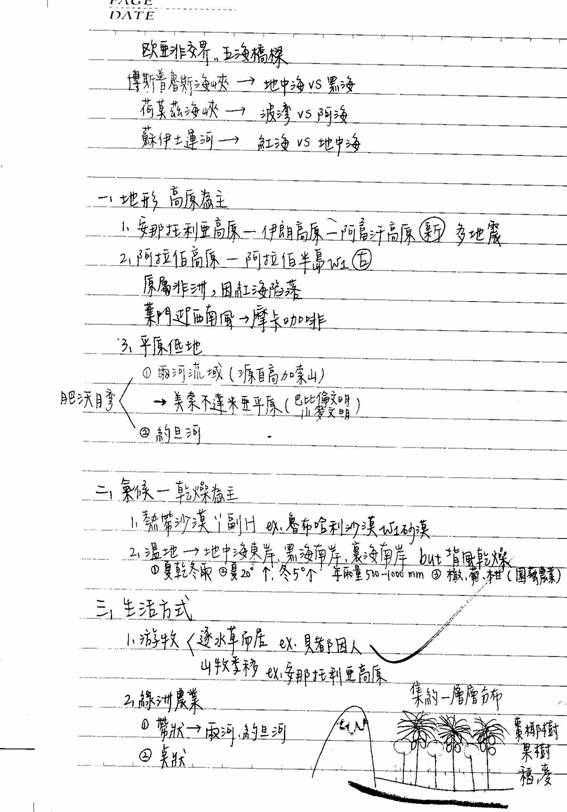 PAGE
DATE
歐亞非交界,五海橋樑
博斯普魯斯海峽 → 地中海 vs 黑海
荷莫茲海峽 → 波灣 vs 阿海
蘇伊士運河 → 紅海 vs 地中海
一、地形 高原為主
1. 安那托利亞高原—伊朗高原—阿富汗高原 新 多地震
2. 阿拉伯高原—阿拉伯半島 W1 古
原屬非洲,因紅海陷落
葉門迎西南風→摩卡咖啡
3. 平原低地
① 兩河流域(源自高加索山)
肥沃月彎
→ 美索不達米亞平原(巴比倫文明 小麥文明)
② 約旦河
二、氣候—乾燥為主
1. 熱帶沙漠 ㄚ副H ex. 魯布哈利沙漠 W1砂漠
2. 溫地→地中海東岸、黑海南岸、裏海南岸 but 背風乾燥
① 夏乾冬雨 ② 夏20°↑, 冬5°↑ 年雨量500-1000mm ③ 橄、葡、柑(園藝農業)
三、生活方式
1. 游牧 逐水草而居 ex. 貝都因人
山牧季移 ex. 安那托利亞高原
集約—層層分布
2. 綠洲農業
① 帶狀→兩河、約旦河
棗椰樹
果樹
② 點狀
稻、麥